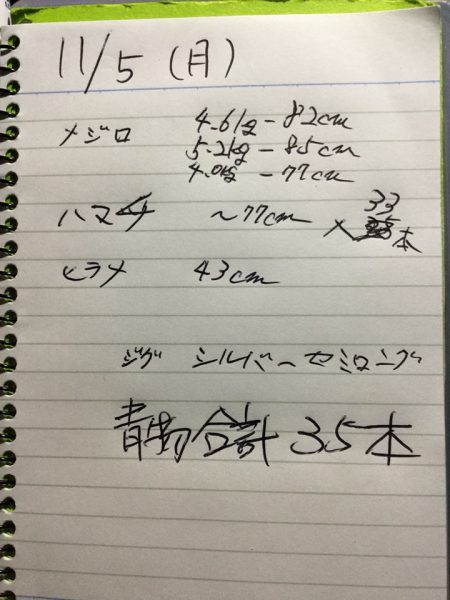 11/5 (月)
メジロ 4.61kg - 82cm
5.21kg - 85cm
4.01kg - 77cm
ハマチ ~77cm × 33本
ヒラメ 43cm
ジグ シルバーセミロング
青物合計 35本